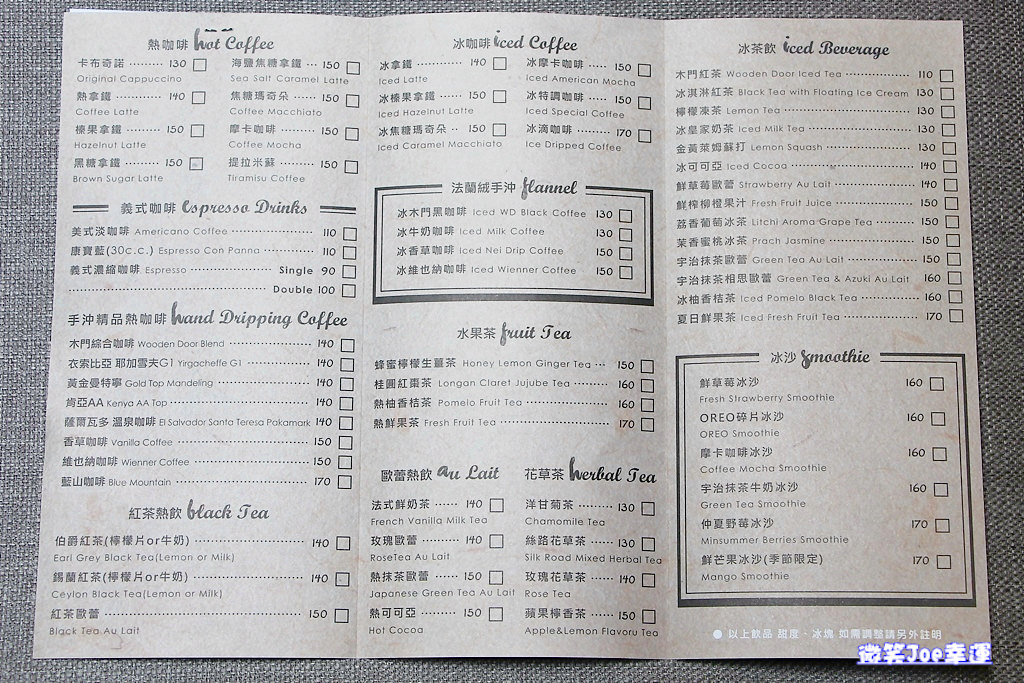 熱咖啡 hot Coffee
卡布奇諾 130
Original Cappuccino
熱拿鐵 140
Coffee Latte
榛果拿鐵 150
Hazelnut Latte
黑糖拿鐵 150
Brown Sugar Latte
海鹽焦糖拿鐵 150
Sea Salt Caramel Latte
焦糖瑪奇朵 150
Coffee Macchiato
摩卡咖啡 150
Coffee Mocha
提拉米蘇 150
Tiramisu Coffee
義式咖啡 Espresso Drinks
美式淡咖啡 Americano Coffee 110
康寶藍(30c.c.) Espresso Con Panna 110
義式濃縮咖啡 Espresso Single 90
Double 100
手沖精品熱咖啡 hand Dripping Coffee
木門綜合咖啡 Wooden Door Blend 140
衣索比亞 耶加雪夫G1 Yirgacheffe G1 140
黃金曼特寧 Gold Top Mandeling 140
肯亞AA Kenya AA Top 140
薩爾瓦多 溫泉咖啡 El Salvador Santa Teresa Pakamark 140
香草咖啡 Vanilla Coffee 150
維也納咖啡 Wienner Coffee 150
藍山咖啡 Blue Mountain 170
紅茶熱飲 black Tea
伯爵紅茶(檸檬片or牛奶) 140
Earl Grey Black Tea(Lemon or Milk)
錫蘭紅茶(檸檬片or牛奶) 140
Ceylon Black Tea(Lemon or Milk)
紅茶歐蕾 150
Black Tea Au Lait
冰咖啡 iced Coffee
冰拿鐵 140
Iced Latte
冰榛果拿鐵 150
Iced Hazelnut Latte
冰焦糖瑪奇朵 150
Iced Caramel Macchiato
冰摩卡咖啡 150
Iced American Mocha
冰特調咖啡 150
Iced Special Coffee
冰滴咖啡 170
Ice Dripped Coffee
法蘭絨手沖 flannel
冰木門黑咖啡 Iced WD Black Coffee 130
冰牛奶咖啡 Iced Milk Coffee 130
冰香草咖啡 Iced Nei Drip Coffee 150
冰維也納咖啡 Iced Wienner Coffee 150
水果茶 fruit Tea
蜂蜜檸檬生薑茶 Honey Lemon Ginger Tea 150
桂圓紅棗茶 Longan Claret Jujube Tea 160
熱柚香桔茶 Pomelo Fruit Tea 160
熱鮮果茶 Fresh Fruit Tea 170
歐蕾熱飲 au Lait
法式鮮奶茶 140
French Vanilla Milk Tea
玫瑰歐蕾 140
RoseTea Au Lait
熱抹茶歐蕾 150
Japanese Green Tea Au Lait
熱可可亞 150
Hot Cocoa
花草茶 herbal Tea
洋甘菊茶 130
Chamomile Tea
絲路花草茶 130
Silk Road Mixed Herbal Tea
玫瑰花草茶 140
Rose Tea
蘋果檸香茶 150
Apple&Lemon Flavoru Tea
冰茶飲 iced Beverage
木門紅茶 Wooden Door Iced Tea 110
冰淇淋紅茶 Black Tea with Floating Ice Cream 130
檸檬凍茶 Lemon Tea 130
冰皇家奶茶 Iced Milk Tea 130
金黃萊姆蘇打 Lemon Squash 130
冰可可亞 Iced Cocoa 140
鮮草莓歐蕾 Strawberry Au Lait 140
鮮榨柳橙果汁 Fresh Fruit Juice 150
荔香葡萄冰茶 Litchi Aroma Grape Tea 150
茉香蜜桃冰茶 Prach Jasmine 150
宇治抹茶歐蕾 Green Tea Au Lait 150
宇治抹茶相思歐蕾 Green Tea & Azuki Au Lait 160
冰柚香桔茶 Iced Pomelo Black Tea 160
夏日鮮果茶 Iced Fresh Fruit Tea 170
冰沙 smoothie
鮮草莓冰沙 160
Fresh Strawberry Smoothie
OREO碎片冰沙 160
OREO Smoothie
摩卡咖啡冰沙 160
Coffee Mocha Smoothie
宇治抹茶牛奶冰沙 160
Green Tea Smoothie
仲夏野莓冰沙 170
Minsummer Berries Smoothie
鮮芒果冰沙(季節限定) 170
Mango Smoothie
● 以上飲品 甜度、冰塊 如需調整請另外註明
微笑Joe幸運